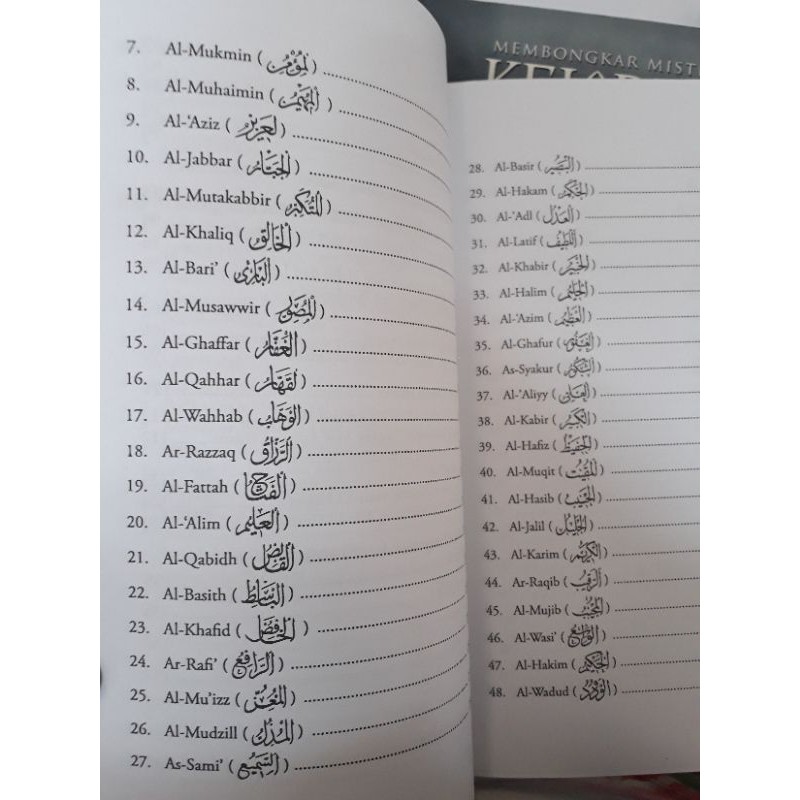 7. Al-Mukmin (لمُؤْمِنُ) ..............................
8. Al-Muhaimin (المُهَيْمِنُ) ..............................
9. Al-‘Aziz (لعَزِيزُ) ..............................
10. Al-Jabbar (الجَبَّارُ) ..............................
11. Al-Mutakabbir (المُتَكَبِّرُ) ..............................
12. Al-Khaliq (الخَالِقُ) ..............................
13. Al-Bari’ (البَارِئُ) ..............................
14. Al-Musawwir (المُصَوِّرُ) ..............................
15. Al-Ghaffar (الغَفَّارُ) ..............................
16. Al-Qahhar (لقَهَّارُ) ..............................
17. Al-Wahhab (الوَهَّابُ) ..............................
18. Ar-Razzaq (الرَّزَّاقُ) ..............................
19. Al-Fattah (الفَتَّاحُ) ..............................
20. Al-‘Alim (العَلِيمُ) ..............................
21. Al-Qabidh (القَابِضُ) ..............................
22. Al-Basith (البَاسِطُ) ..............................
23. Al-Khafid (الخَافِضُ) ..............................
24. Ar-Rafi’ (الرَّافِعُ) ..............................
25. Al-Mu’izz (المُعِزُّ) ..............................
26. Al-Mudzill (المُذِلُّ) ..............................
27. As-Sami’ (السَّمِيعُ) ..............................
MEMBONGKAR MIST
28. Al-Basir (البَصِيرُ) ..............................
29. Al-Hakam (الحَكَمُ) ..............................
30. Al-’Adl (العَدْلُ) ..............................
31. Al-Latif (اللَّطِيفُ) ..............................
32. Al-Khabir (الخَبِيرُ) ..............................
33. Al-Halim (الحَلِيمُ) ..............................
34. Al-‘Azim (العَظِيمُ) ..............................
35. Al-Ghafur (الغَفُورُ) ..............................
36. As-Syakur (الشَّكُورُ) ..............................
37. Al-’Aliyy (العَلِيُّ) ..............................
38. Al-Kabir (الكَبِيرُ) ..............................
39. Al-Hafiz (الحَفِيظُ) ..............................
40. Al-Muqit (المُقِيتُ) ..............................
41. Al-Hasib (الحَسِيبُ) ..............................
42. Al-Jalil (الجَلِيلُ) ..............................
43. Al-Karim (الكَرِيمُ) ..............................
44. Ar-Raqib (الرَّقِيبُ) ..............................
45. Al-Mujib (المُجِيبُ) ..............................
46. Al-Wasi’ (الوَاسِعُ) ..............................
47. Al-Hakim (الحَكِيمُ) ..............................
48. Al-Wadud (الوَدُودُ) ..............................